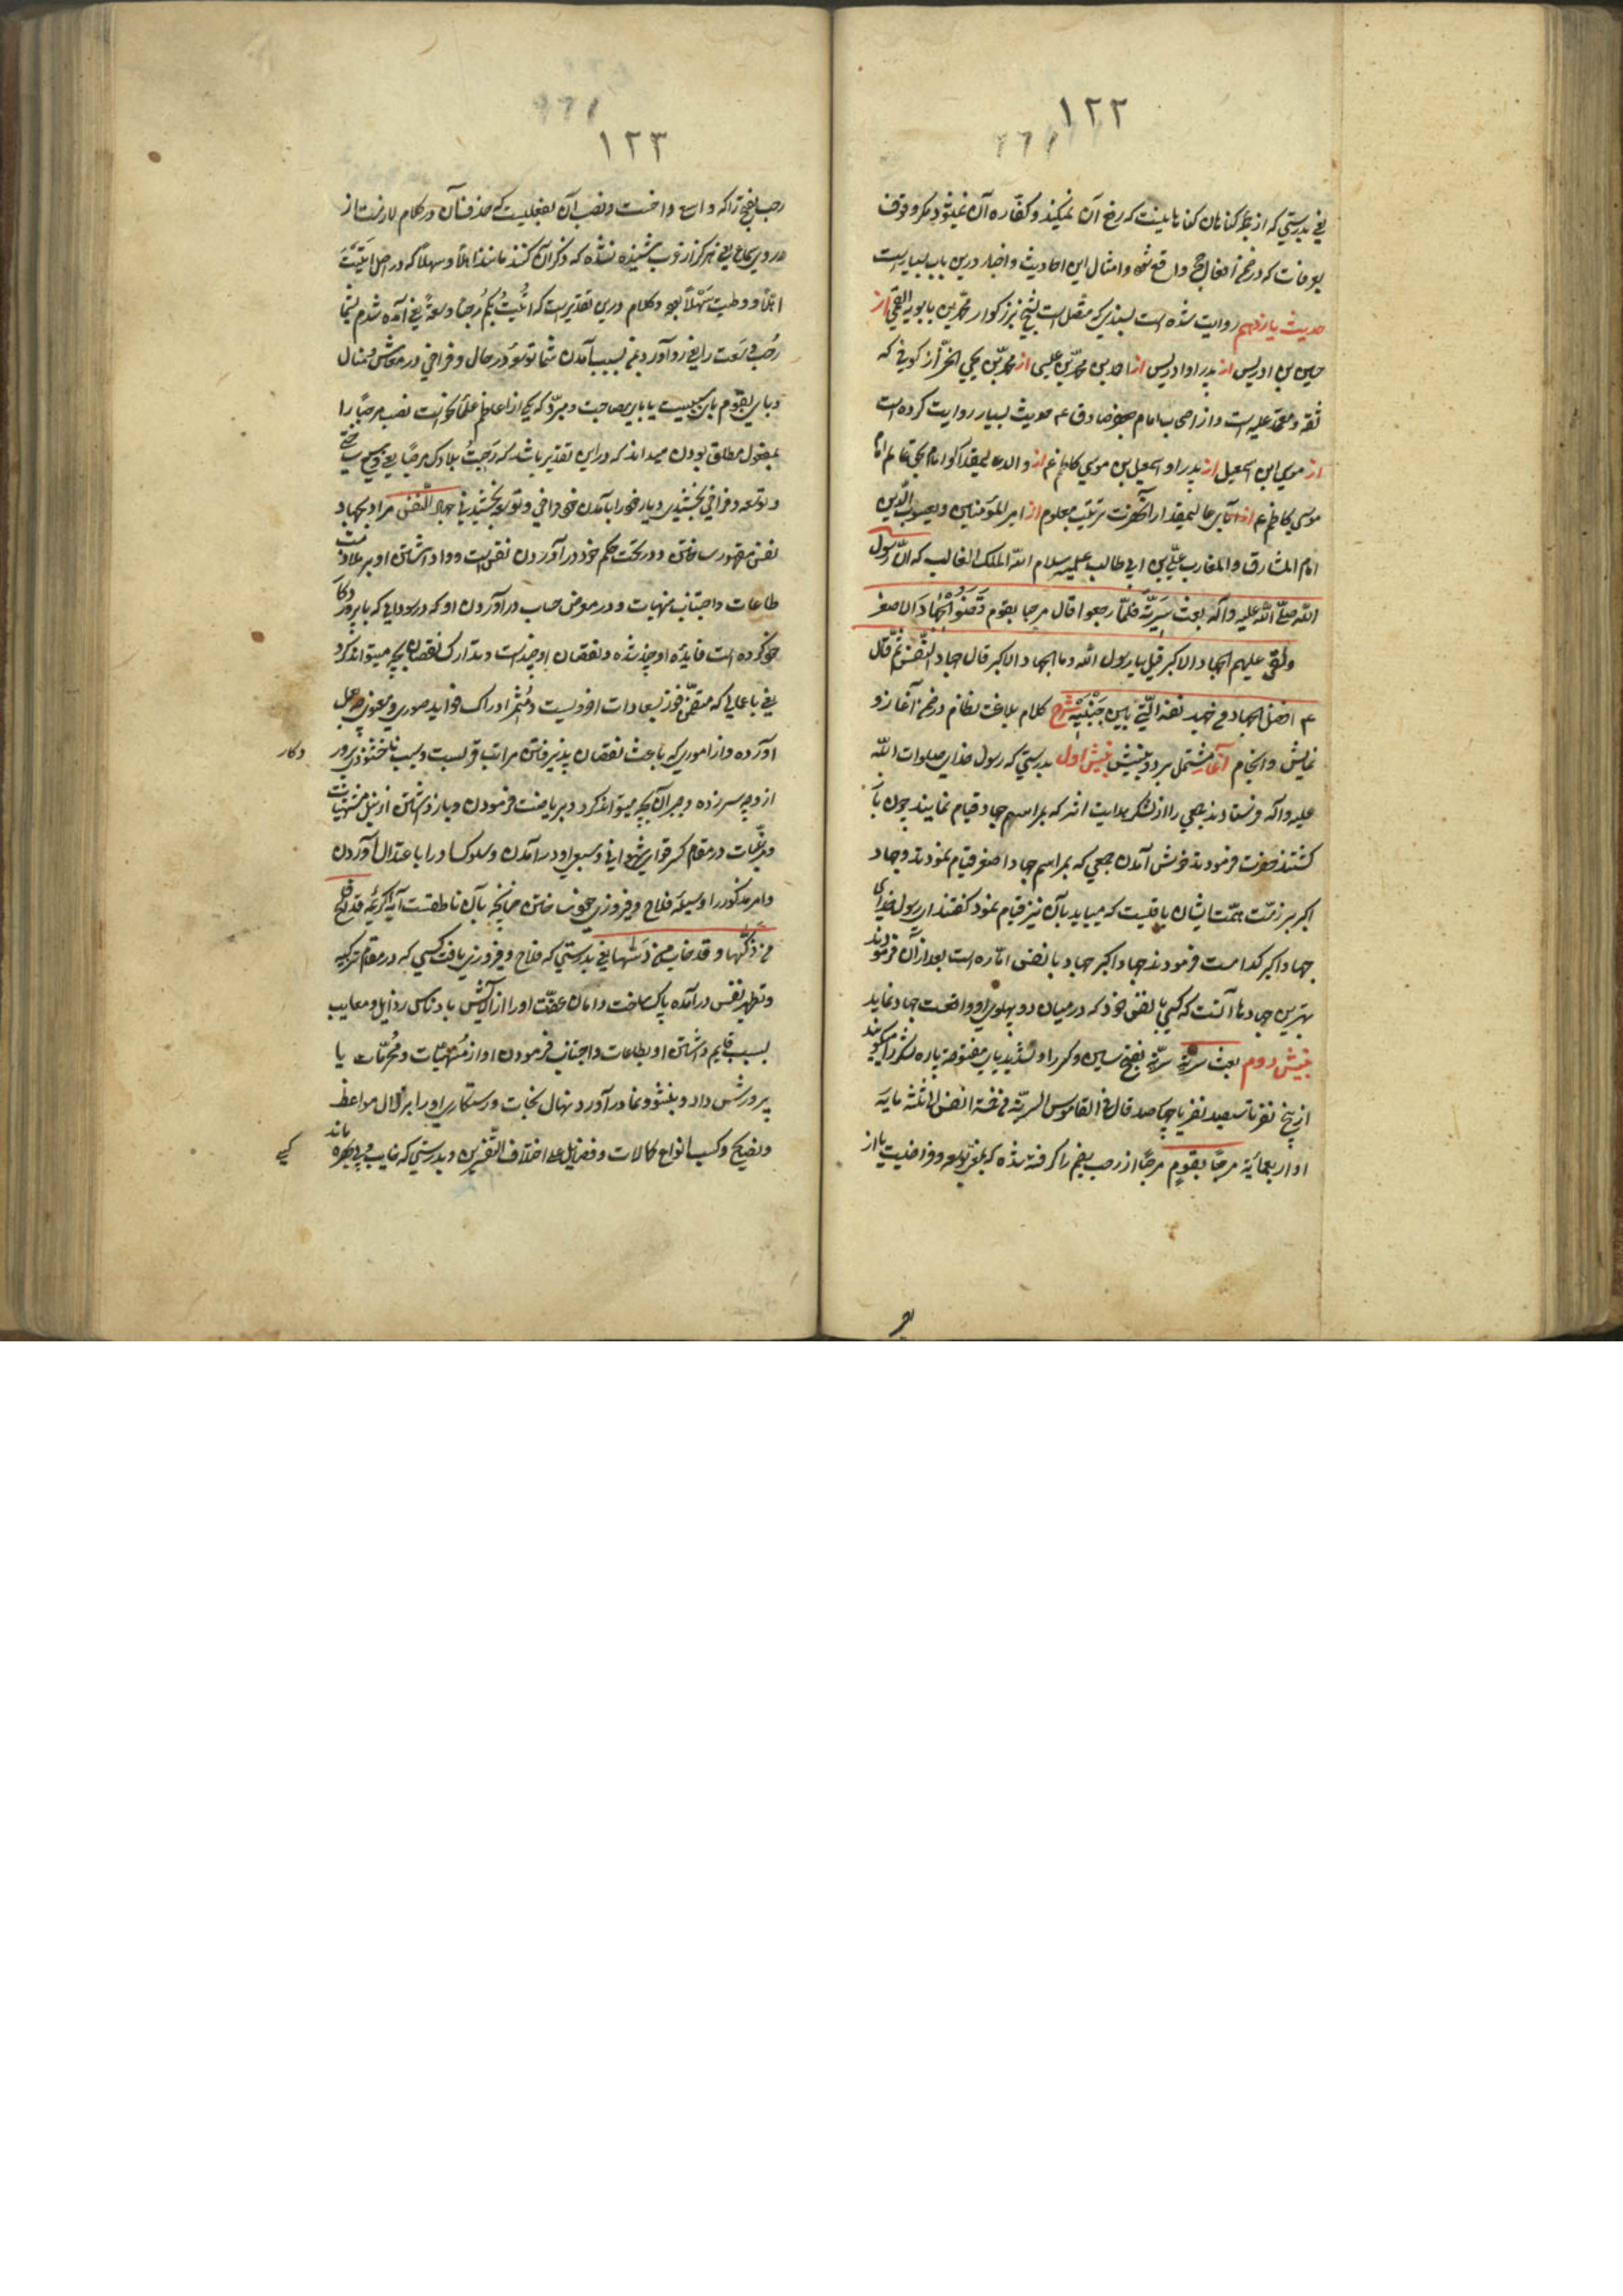 ١٢٢
يعنی بدرستی که از جمله گناهان گناهانیست که رفع آن نمیکند و کفاره آن نمیشود مکر وقوف
بعرفات که در ضمن افعال حج واقع شود و امثال این احادیث و اخبار درین باب بسیار است
حدیث یازدهم روایت شده است بسندی که متصل است بشیخ بزرکوار محمد بن بابویه القمی از
حسین بن ادریس از پدر او ادریس از احمد بن محمد بن عیسی از محمد بن یحیی الخزاز کوفی که
ثقه و معتمد علیه است و از اصحاب امام جعفر صادق ع حدیث بسیار روایت کرده است
از موسی ابن اسمعیل از پدر او اسمعیل بن موسی کاظم ع از والد عالیمقدار او امام بحق عالم امام
موسی کاظم ع از آبای عالیمقدار آنحضرت بترتیب معلوم از امیر المؤمنین و یعسوب الدین
امام المشارق و المغارب علی بن ابی طالب علیه سلام الله الملک الغالب که انّ رسول
الله صلّی الله علیه و آله بعث سَرِیّة فلمّا رجعوا قال مرحبا بقوم قَضَوُا الجِهادَ الاصغر
وبقی علیهم الجهاد الاکبر قیل یا رسول الله وما الجهاد الاکبر قال جهاد النفس ثم قال
ع افضل الجهاد من جهد نفسه الّتی بین جَنْبَیْهِ شرح کلام بلاغت نظام در ضمن آغاز و
نمایش و انجام آغاز مشتمل بر دو بینش بینش اول بدرستی که رسول خدای صلوات الله
علیه و آله فرستادند جمعی را از لشکر هدایت اثر که بمراسم جهاد قیام نمایند چون باز
کشتند حضرت فرمودند خوش آمدن جمعی که بمراسم جهاد اصغر قیام نمودند و جهاد
اکبر بر ذمّت همّت ایشان باقیست که میباید بآن نیز قیام نمود کفتند ای رسول خدای
جهاد اکبر کدامست فرمودند جهاد اکبر جهاد با نفس امّاره است بعد از آن فرمودند
بهترین جهادها آنست که کسی با نفس خود که در میان دو پهلوی او واقعست جهاد نماید
بینش دوم بعث سریّة سریّة بفتح سین و کسر را و تشدید یای مفتوحه پاره لشکر را میکویند
از پنج نفر تا سیصد نفر یا چهارصد قال فی القاموس السریّة من خمسة انفس الی ثلثمایة
او اربعمائة مرحبًا بقومٍ مرحبًا از رحب بضم را کرفته شده که بمعنی توسعه و فراخیست یا از
١٢٣
رحب بفتح را که واسع و اخست و نصب آن بفعلیست که حذف آن در کلام لازمست از
در روی سماع یعنی هرکز از عرب شنیده نشده که ذکر آن کنند مانند اهلًا و سهلًا که در اصل اَتَیْتَ
اهلًا و وطیت سَهْلًا بوده و کلام درین تقدیر است که اَتَیْتُ بِکُم رُحبًا و سعةً یعنی آمده شدم بشما
رُحب و سَعت را یعنی رو آورد بمن بسبب آمدن شما توسّع در حال و فراخی در معاش و منال
و بای بقوم بای سببیت یا بای مصاحبت و مبرّد که یکی از اعاظم علمای نحو است نصب مرحبًا را
بمفعول مطلق بودن میداند که در این تقدیر باشد که رَحِبَتْ بلادک مرحبًا یعنی وسیع ساختی
و توسعه و فراخی بخشیدی دیار خود را بآمدن خود فراخی و توسع بخشیدنی جهاد النفس مراد بجهاد
نفس مقهور ساختن و در تحت حکم خود در آوردن نفس است و واداشتن او بر ملازمت
طاعات و اجتناب منهیات و در معرض حساب در آوردن او که در سودایی که با پروردکار
خود کرده است فایده او چند شده و نقصان او چند است و تدارک نقصان بچه میتواند کرد
یعنی با اعمالی که متضمّن فوز بسعادات اخرویست و مُثمر ادراک فواید صوری و معنوی چه عمل
آورده و از اموری که باعث نقصان پذیرفتن مراتب قربست و سبب ناخشنودی پرور
دکار
از وی چه سر زده و جبران آن بچه میتواند کرد و بریاضت فرمودن و بازداشتن از نیل مشتهیات
و مرغّبات در مقام کسر قوای شهوانی و سبعی او در آمدن و سلوک او را با عتدال آوردن
و امر مذکور را وسیله فلاح و فیروزی خود ساختن چنانچه بآن ناطقست آیه کریمه قد افلح
من زکّیها و قد خاب من دَسّیها یعنی بدرستی که فلاح و فیروزی یافت کسی که در مقام تزکیه
و تطهیر نفس در آمده پاک ساخت دامان عفّت او را از آلایش بادناس رذایل و معایب
بسبب قایم داشتن او بطاعات و اجتناب فرمودن او از مُنهیّات و مُحرّمات یا
پرورش داد و بنشو و نما در آورد نهال نجات و رستکاری او را بزلال مواعظ
و نصایح و کسب انواع کمالات و فضایل علی اختلاف التفسیرین و بدرستی که خایب و بی بهره ماند
کسی